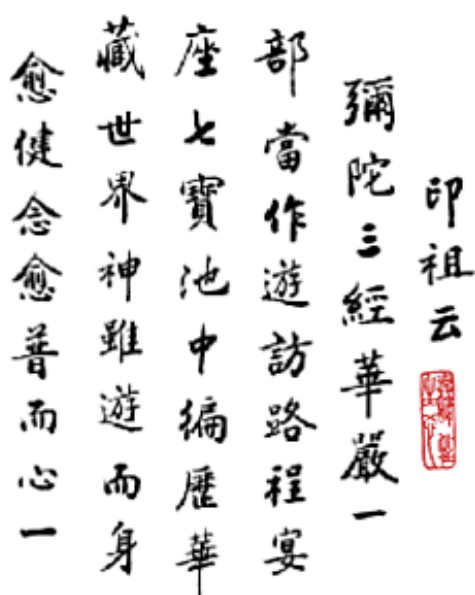 印祖云
彌陀三經華嚴一
部當作遊訪路程宴
座七寶池中徧歷華
藏世界神雖遊而身
愈健念愈普而心一